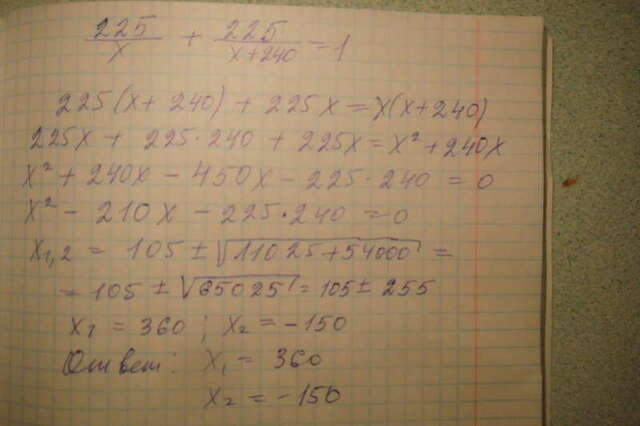 225/x + 225/(x+240) = 1
225(x + 240) + 225x = x(x+240)
225x + 225·240 + 225x = x² + 240x
x² + 240x − 450x − 225·240 = 0
x² − 210x − 225·240 = 0
x₁,₂ = 105 ± √(11025+54000) =
= 105 ± √65025 = 105 ± 255
x₁ = 360 ; x₂ = −150
Ответ: x₁ = 360
x₂ = −150